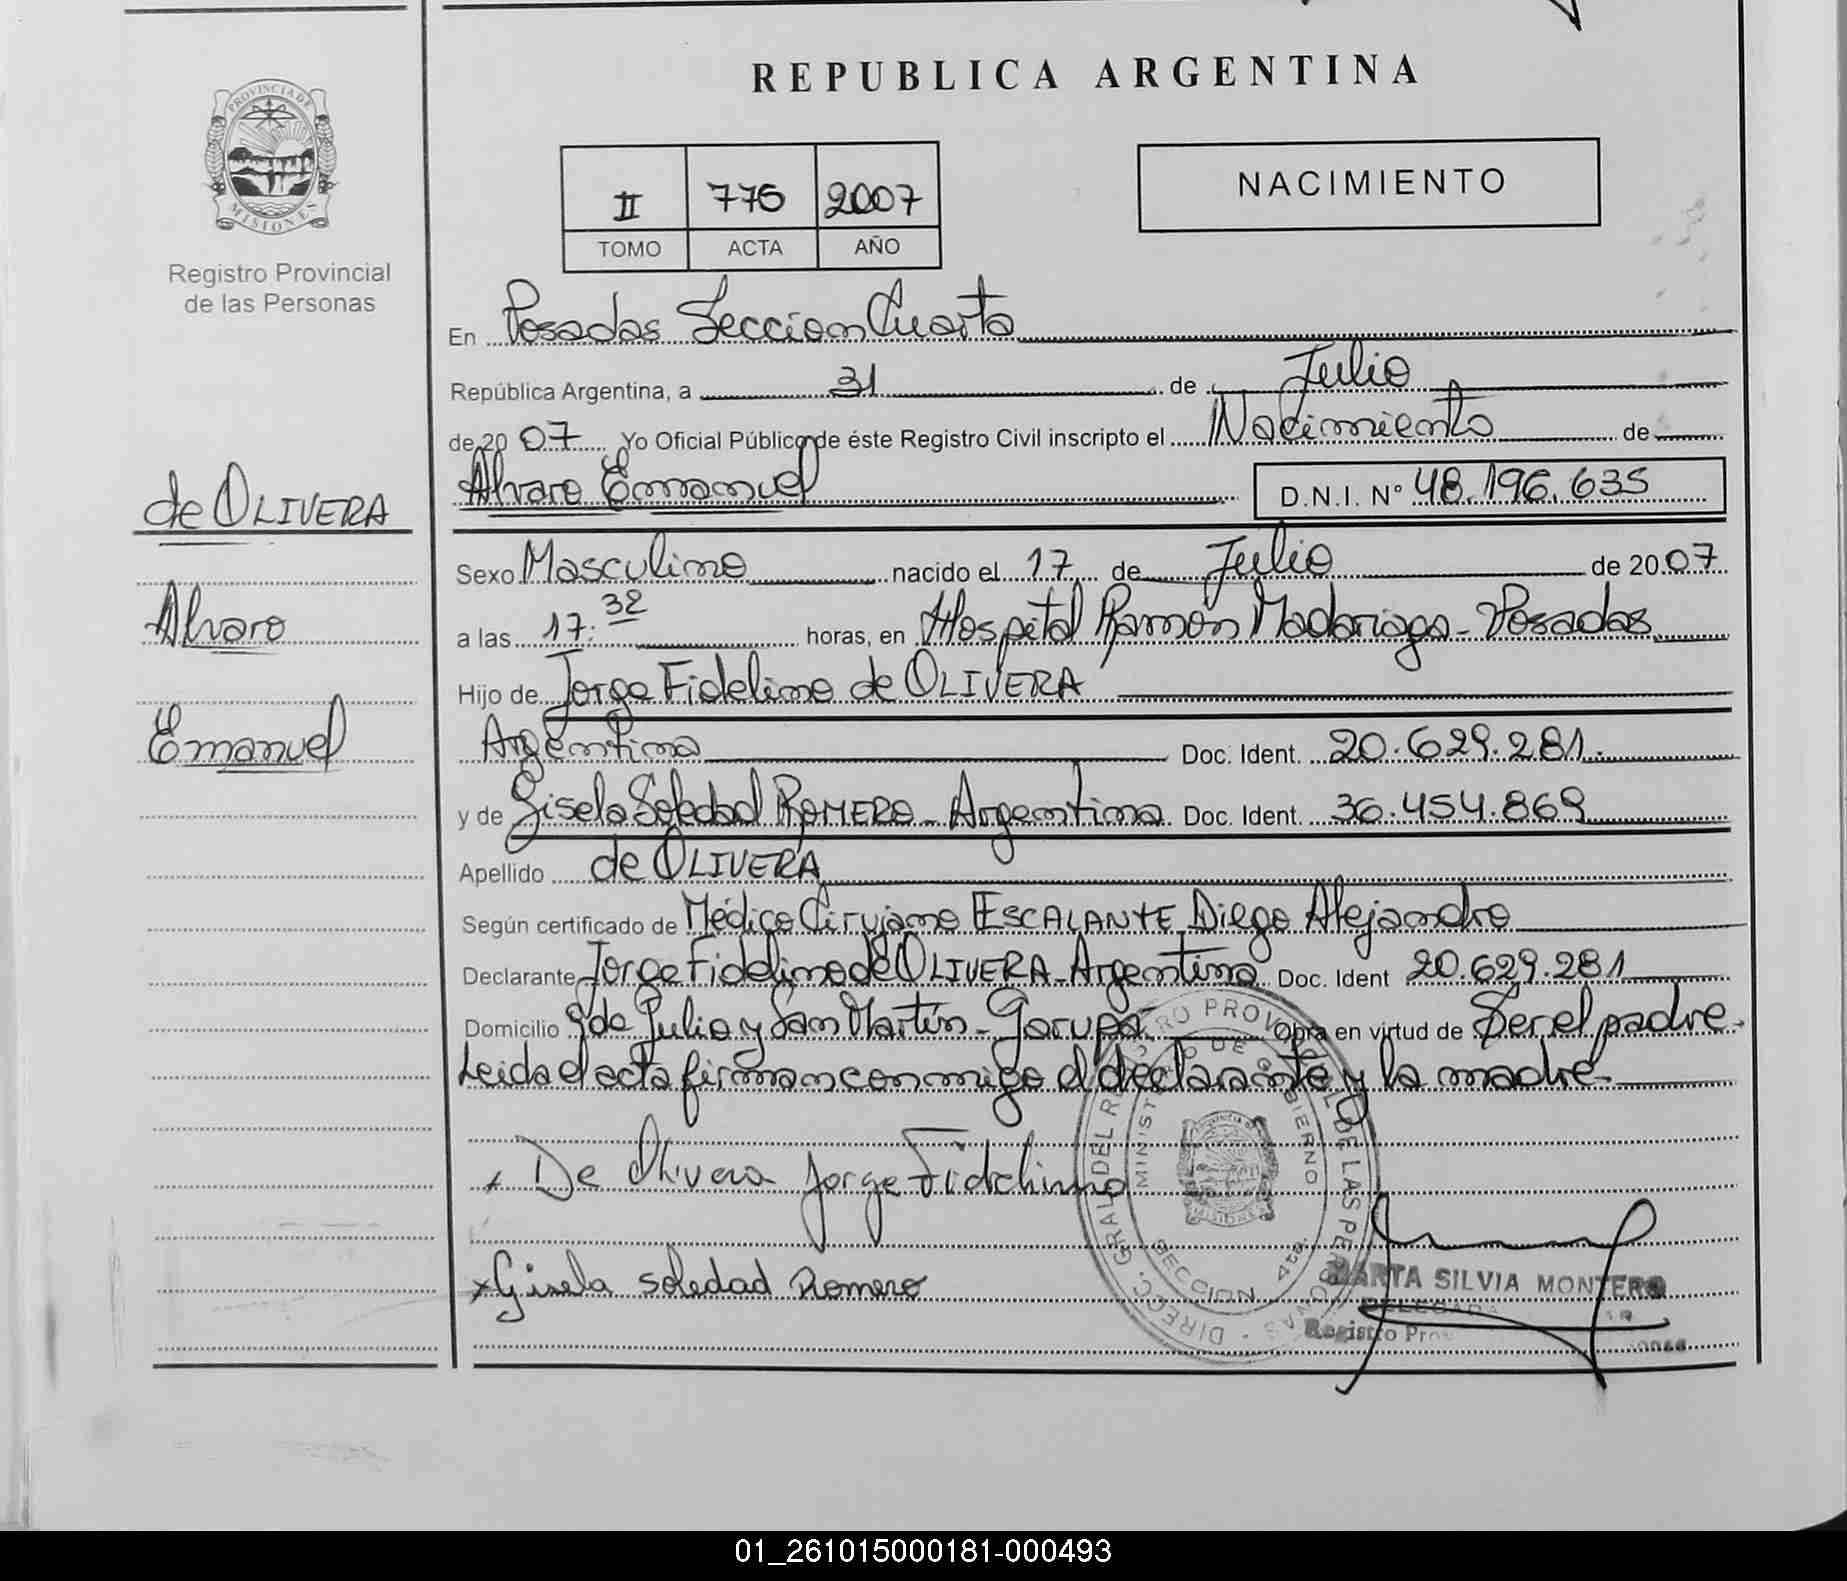 REPUBLICA ARGENTINA
PROVINCIA DE
MISIONES
Registro Provincial
de las Personas
II 776 2007
TOMO ACTA AÑO
NACIMIENTO
En Posadas Seccion Cuarta
República Argentina, a 31 de Julio
de 20 07 Yo Oficial Público de éste Registro Civil inscripto el Nacimiento de
Alvaro Emanuel D.N.I. N° 48.196.635
de OLIVERA
Alvaro
Emanuel
Sexo Masculino nacido el 17 de Julio de 20 07
a las 17:32 horas, en Hospital Ramon Madariaga - Posadas
Hijo de Jorge Fidelino de OLIVERA
Argentino Doc. Ident. 20.629.281.
y de Gisela Soledad ROMERO - Argentina Doc. Ident. 36.454.869
Apellido de OLIVERA
Según certificado de Médico Cirujano ESCALANTE Diego Alejandro
Declarante Jorge Fidelino de OLIVERA - Argentino Doc. Ident 20.629.281
Domicilio 9 de Julio y San Martín - Garupá Obra en virtud de Ser el padre -
Leida el acta firman conmigo el declarante y la madre -
x De Olivera Jorge Fidelino
x Gisela Soledad Romero
DIRECC. GRAL DEL REGISTRO PROVINCIAL DE LAS PERSONAS
MINISTERIO DE GOBIERNO
MISIONES
SECCION 4ta.
MARTA SILVIA MONTERO
DELEGADA
Registro Prov
01_261015000181-000493